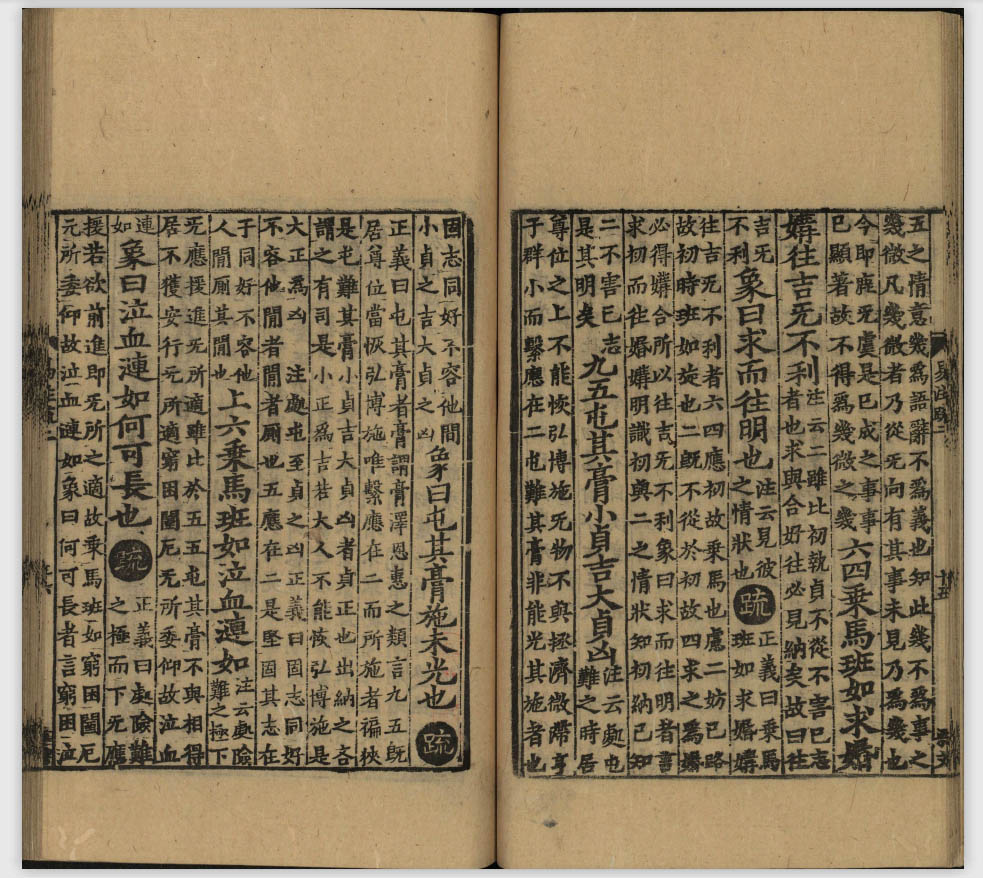 五之情意幾爲語辭不爲義也知此幾不爲事之
幾微凡幾微者乃從无向有其事未見乃爲幾也
今即旣无虞是已成之事事
已顯著故不得爲幾微之幾
六四乘馬班如求婚
媾往吉无不利
注云二雖比初執貞不從不害已志
者也求與合好往必見納矣故曰往
吉无
不利
象曰求而往明也
注云見彼
之情狀也
疏
正義曰乘馬
班如求婚媾
往吉无不利者六四應初故乘馬也慮二妨已路
故初時班如旋也二旣不從於初故四求之爲婚
必得媾合所以往吉无不利象曰求而往明者言
求初而往婚媾明識初與二之情狀知初納已知
二不害已志
是其明矣
九五屯其膏小貞吉大貞凶
注云處屯
難之時居
尊位之上不能恢弘博施无物不與拯濟微滯亨
于群小而繫應在二屯難其膏非能光其施者也
固志同好不容他間
小貞之吉大貞之凶
象曰屯其膏施未光也
疏
正義曰屯其膏者膏謂膏澤恩惠之類言九五旣
居尊位當恢弘博施唯繫應在二而所施者褊狹
是屯難其膏小貞吉大貞凶者貞正也出納之吝
謂之有司是小正爲吉若大人不能恢弘博施是
大正爲凶 注處屯至貞之凶正義曰固志同好
不容他間者間者廁也五應在二是堅固其志在
于同好不容他
人間廁其間也
上六乘馬班如泣血漣如
注云處險
難之極下
无應援進无所適雖比於五五屯其膏不與相得
居不獲安行无所適窮困闉厄无所委仰故泣血
漣
如
象曰泣血漣如何可長也
疏
正義曰處險難
之極而下无應
援若欲前進即无所之適故乘馬班如窮困闉厄
无所委仰故泣血漣如象曰何可長者言窮困泣